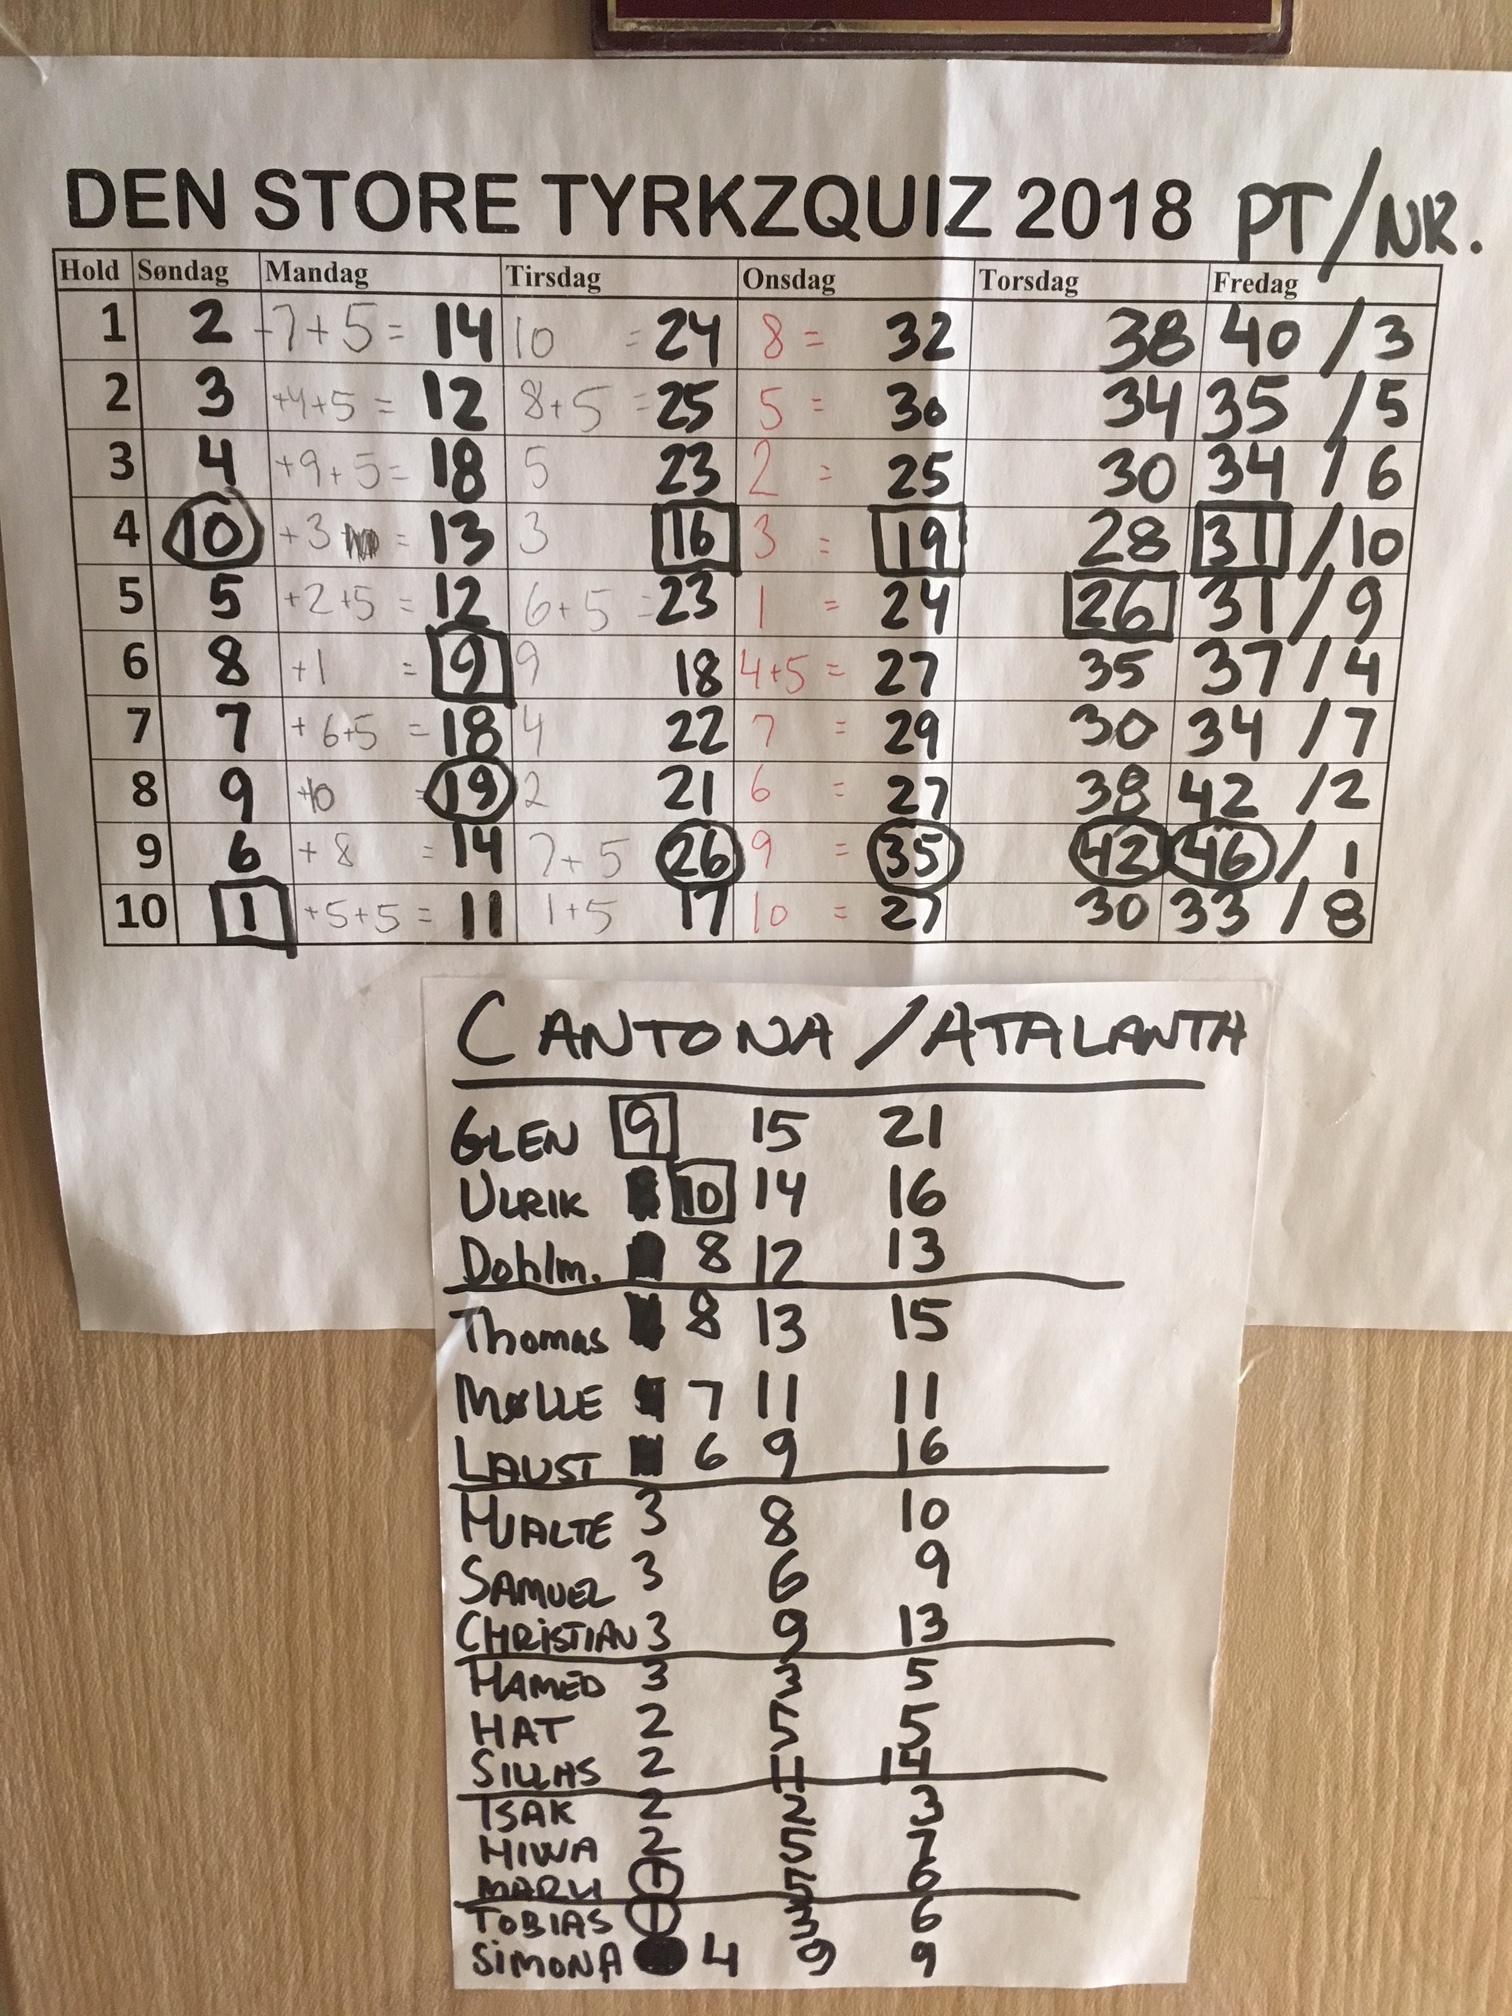 DEN STORE TYRKZQUIZ 2018 PT/NR.
Hold Søndag Mandag Tirsdag Onsdag Torsdag Fredag
1 2 +7+5= 14 10 = 24 8 = 32 38 40 / 3
2 3 +4+5 = 12 8+5 = 25 5 = 30 34 35 / 5
3 4 +9+5= 18 5 23 2 = 25 30 34 / 6
4 10 +3 = 13 3 16 3 = 19 28 31 / 10
5 5 +2+5 = 12 6+5 = 23 1 = 24 26 31 / 9
6 8 +1 = 9 9 18 4+5 = 27 35 37 / 4
7 7 +6+5 = 18 4 22 7 = 29 30 34 / 7
8 9 +10 = 19 2 21 6 = 27 38 42 / 2
9 6 +8 = 14 7+5 26 9 = 35 42 46 / 1
10 1 +5+5 = 11 1+5 17 10 = 27 30 33 / 8
CANTONA / ATALANTA
GLEN 9 15 21
ULRIK 10 14 16
Dohlm. 8 12 13
Thomas 8 13 15
MØLLE 7 11 11
LAUST 6 9 16
HJALTE 3 8 10
SAMUEL 3 6 9
CHRISTIAN 3 9 13
HAMED 3 3 5
HAT 2 5 5
SILLAS 2 11 14
ISAK 2 2 3
HIWA 2 5 7
5 6
TOBIAS 3 6
SIMONA 4 9 9